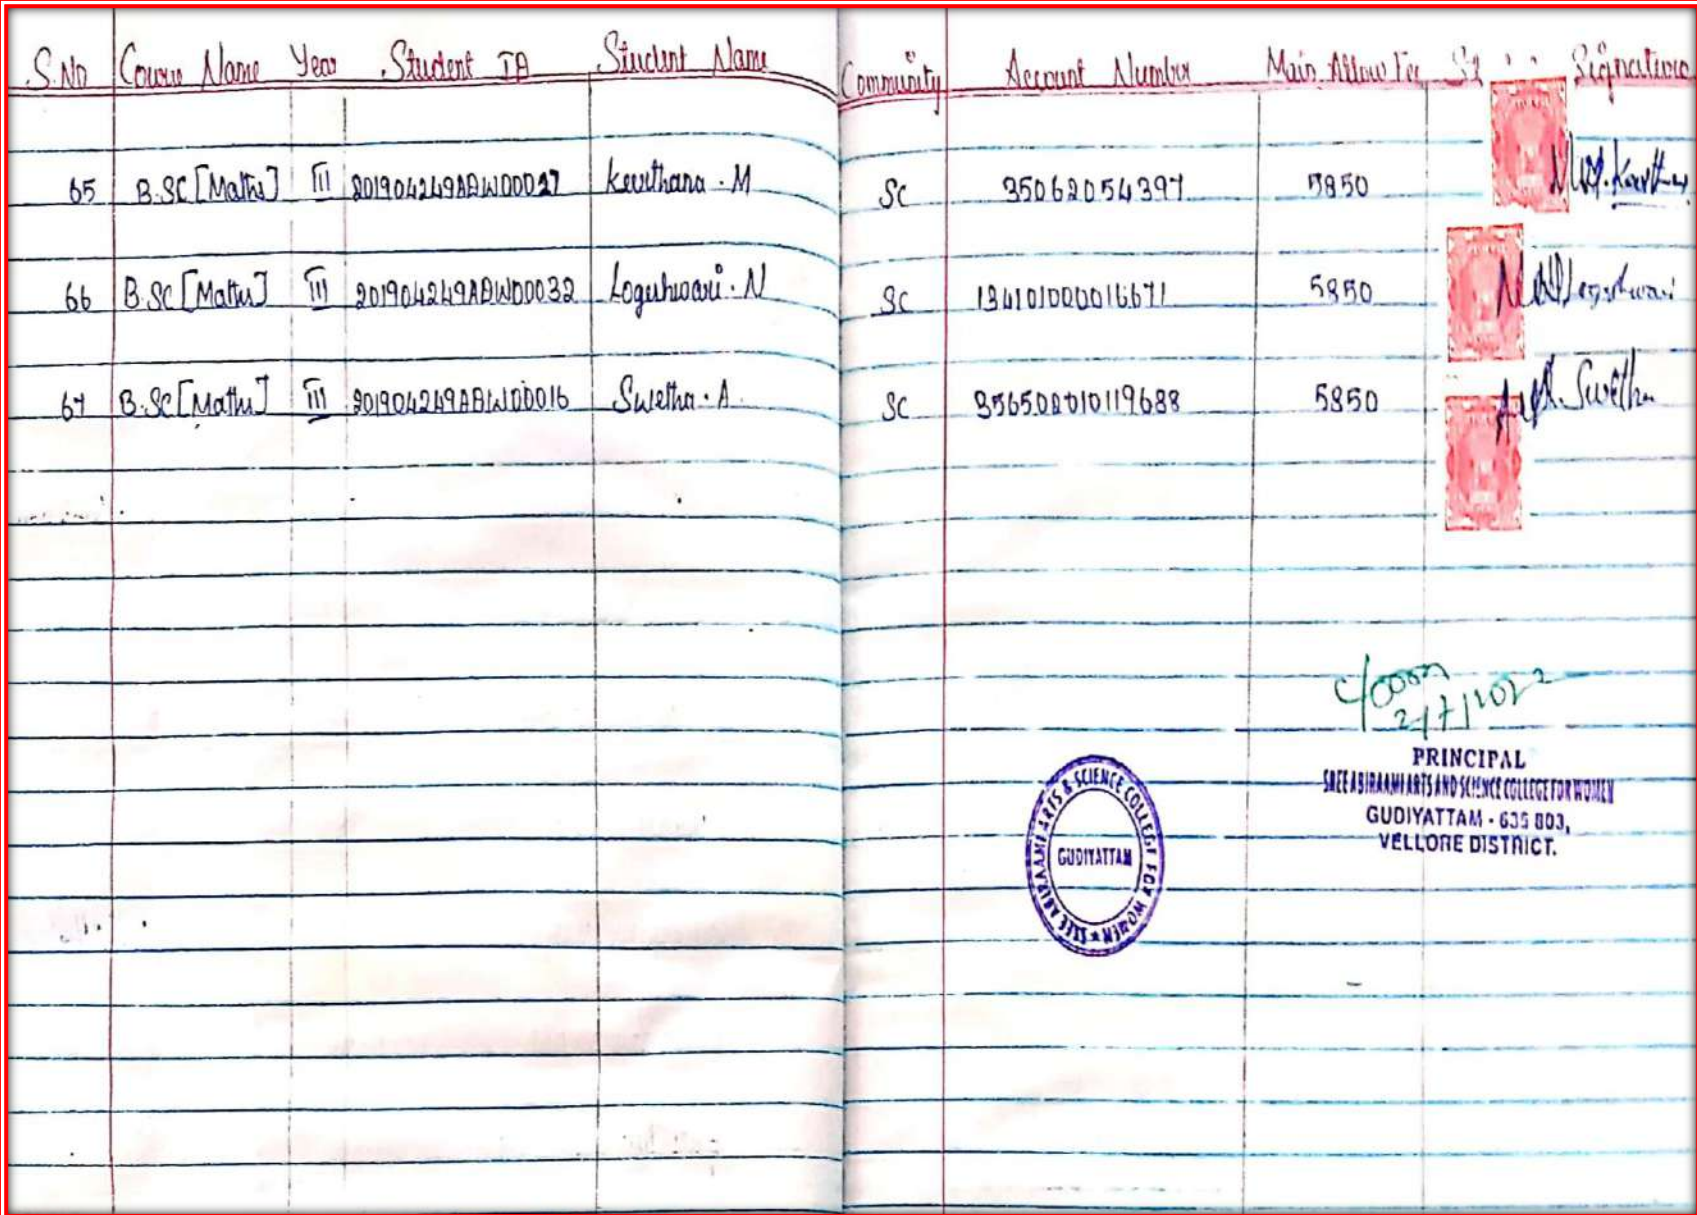 S.No Course Name Year Student ID Student Name Community Account Number Main Allow Fee Signature
65 B.SC [Maths] III 201904249ABW00027 Keerthana . M SC 35062054397 5850
66 B.SC [Maths] III 201904249ABW00032 Logeshwari . N SC 134101000016671 5850
67 B.SC [Maths] III 201904249ABW00016 Swetha . A SC 356500010119688 5850 A. Swetha
2/7/2022
PRINCIPAL
SREE ABIRAAMI ARTS AND SCIENCE COLLEGE FOR WOMEN
GUDIYATTAM - 635 803,
VELLORE DISTRICT.
SREE ABIRAAMI ARTS & SCIENCE COLLEGE FOR WOMEN
GUDIYATTAM